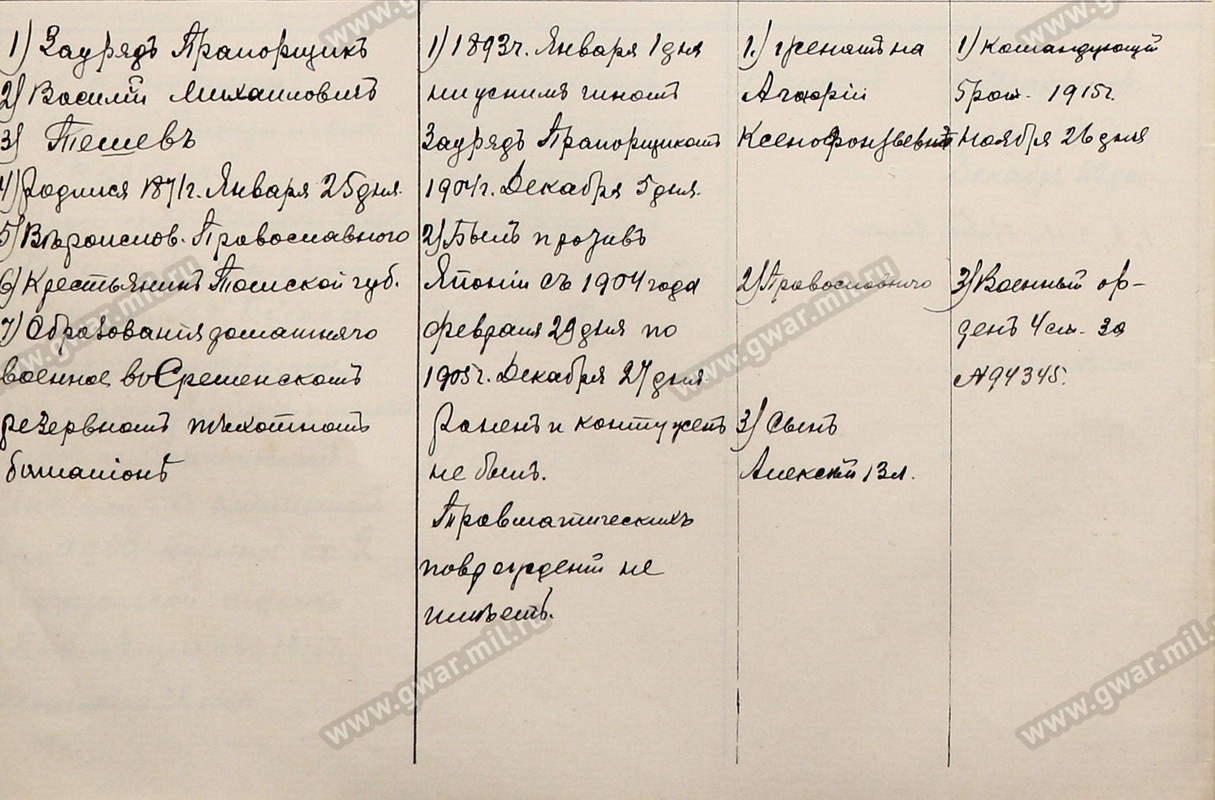 1) Заурядъ Прапорщикъ
2) Василій Михаиловичъ
3) Пешевъ
4) Родился 1871г. Января 25 дня.
5) Вѣроислов. Православнаго
6) Крестьянинъ Томской губ.
7) Образованія домашняго
военное во Срѣтенскомъ
резервномъ пѣхотномъ
баталіонѣ
1) 1893г. Января 1 дня
нижнимъ чиномъ
Заурядъ Прапорщикомъ
1904г. Декабря 5 дня.
2) Былъ противъ
Японіи съ 1904 года
февраля 29 дня по
1905г. Декабря 27 дня
Раненъ и контуженъ
не былъ.
Травматическихъ
поврежденій не
имѣетъ.
1.) Женатъ на
2) Православнаго
3) Сынъ
Алексѣй 13 л.
1) Командующій
5 рот. 1915г.
Ноября 26 дня
3) Военный ор-
денъ 4 ст. за
№94345.
www.gwar.mil.ru
www.gwar.mil.ru
www.gwar.mil.ru
www.gwar.mil.ru
www.gwar.mil.ru